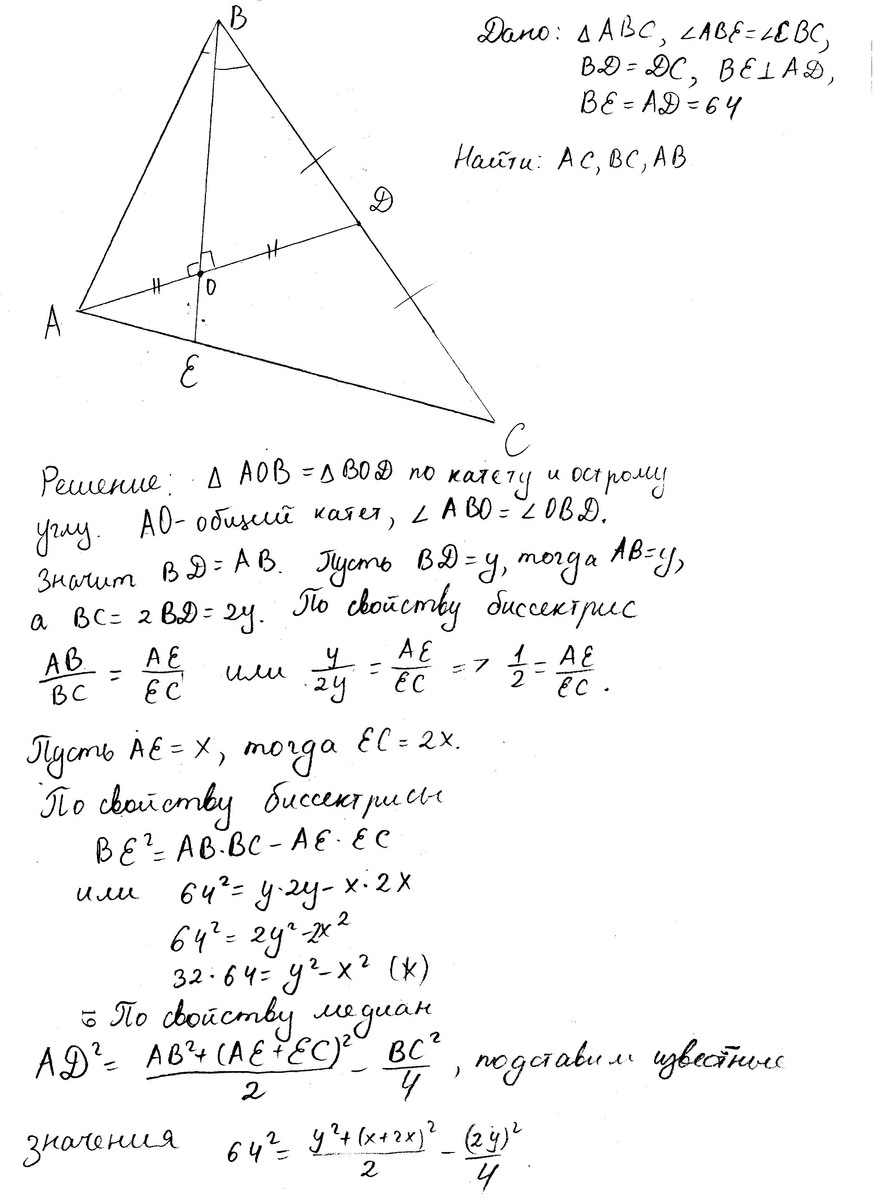 B
Дано: △ ABC, ∠ABE=∠EBC,
BD=DC, BE⊥AD,
BE=AD=64
Найти: AC, BC, AB
D
O
A
E
C
Решение: △ AOB = △ BOD по катету и острому
углу. AO- общий катет, ∠ ABO=∠OBD.
Значит BD=AB. Пусть BD=y, тогда AB=y,
а BC= 2BD=2y. По свойству биссектрис
AB/BC = AE/EC или y/2y = AE/EC => 1/2 = AE/EC.
Пусть AE=x, тогда EC=2x.
По свойству биссектрисы
BE²=AB·BC-AE·EC
или 64²=y·2y-x·2x
64²=2y²-2x²
32·64=y²-x² (*)
По свойству медиан
AD²= (AB²+(AE+EC)²)/2 - BC²/4, подставим известные
значения 64²= (y²+(x+2x)²)/2 - (2y)²/4